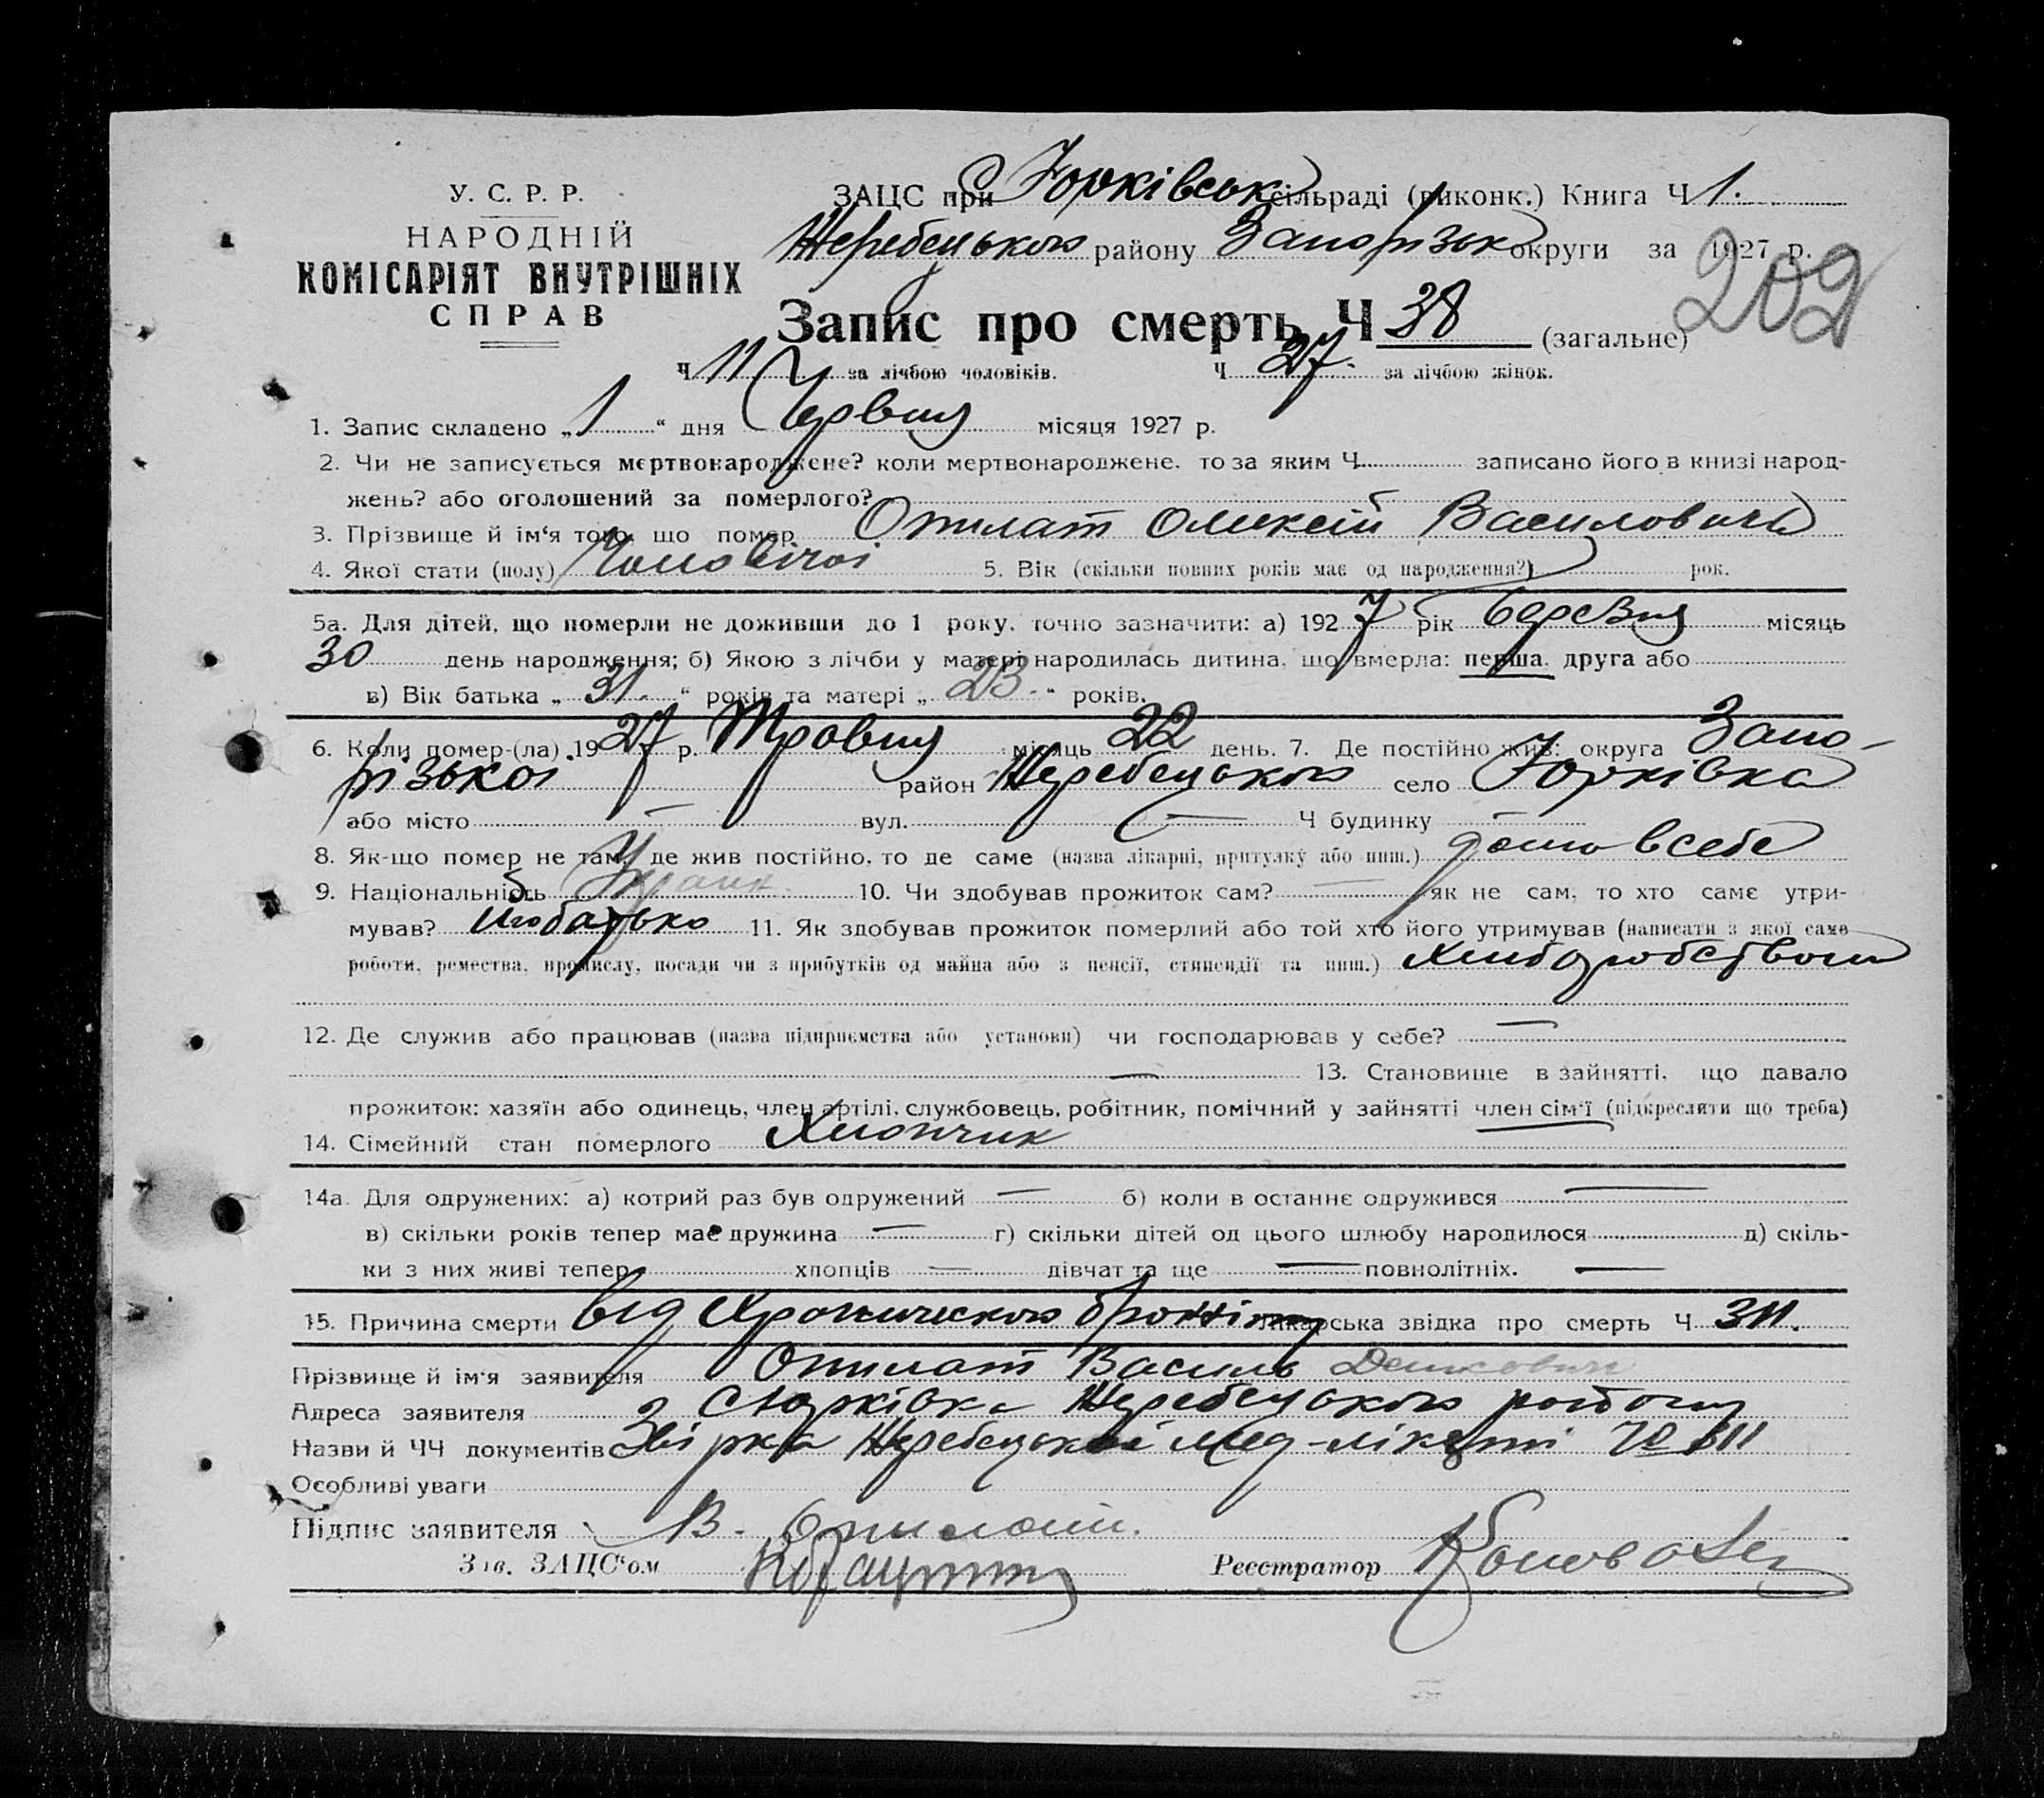 У. С. Р. Р.
НАРОДНІЙ
КОМІСАРІЯТ ВНУТРІШНІХ
СПРАВ
ЗАЦС при Юрківськ сільраді (виконк.) Книга Ч 1.
Жеребецького району Запорізьк округи за 1927 р.
202
Запис про смерть Ч 38 (загальне)
Ч 11 за лічбою чоловіків. Ч 27. за лічбою жінок.
1. Запис складено „ 1 “ дня Червня місяця 1927 р.
2. Чи не записується мертвонароджене? коли мертвонароджене, то за яким Ч. записано його в книзі народ-
жень? або оголошений за померлого?
3. Прізвище й ім‘я того, що помер Опилат Олексій Василович
4. Якої стати (полу) Чоловічої 5. Вік (скільки повних років має од народження?) рок.
5а. Для дітей, що померли не доживши до 1 року, точно зазначити: а) 192 7 рік березня місяць
30 день народження; б) Якою з лічби у матері народилась дитина, що вмерла: перша, друга або
в) Вік батька „ 31. “ років та матері „ 23. “ років.
6. Коли помер-(ла) 19 27 р. Травня місяць 22 день. 7. Де постійно жив: округа Запо-
різької район Жеребецького село Юрківка
або місто — вул. — Ч будинку —
8. Як-що помер не там, де жив постійно, то де саме (назва лікарні, притулку або инш.) дома в себе
9. Національність Україн. 10. Чи здобував прожиток сам? — як не сам, то хто саме утри-
мував? його батько 11. Як здобував прожиток померлий або той хто його утримував (написати з якої саме
роботи, ремества, промислу, посади чи з прибутків од майна або з пенсії, стипендії та инш.) Хліборобством
12. Де служив або працював (назва підприємства або установи) чи господарював у себе? —
— 13. Становище в зайнятті, що давало
прожиток: хазяїн або одинець, член артілі, службовець, робітник, помічний у зайнятті член сім‘ї (підкреслити що треба)
14. Сімейний стан померлого Хлопчик
14а. Для одружених: а) котрий раз був одружений — б) коли в останнє одружився —
в) скільки років тепер має дружина — г) скільки дітей од цього шлюбу народилося д) скіль-
ки з них живі тепер хлопців — дівчат та ще — повнолітніх. —
15. Причина смерти від Хроничного бронхіту Лікарська звідка про смерть Ч 311.
Прізвище й ім‘я заявителя Опилат Василь
Адреса заявителя с Юрківка Жеребецького району
Назви й ЧЧ документів Жеребецької мед-лікарні № 311
Особливі уваги
Підпис заявителя В. Опилат.
Зав. ЗАЦС‘ом Реєстратор